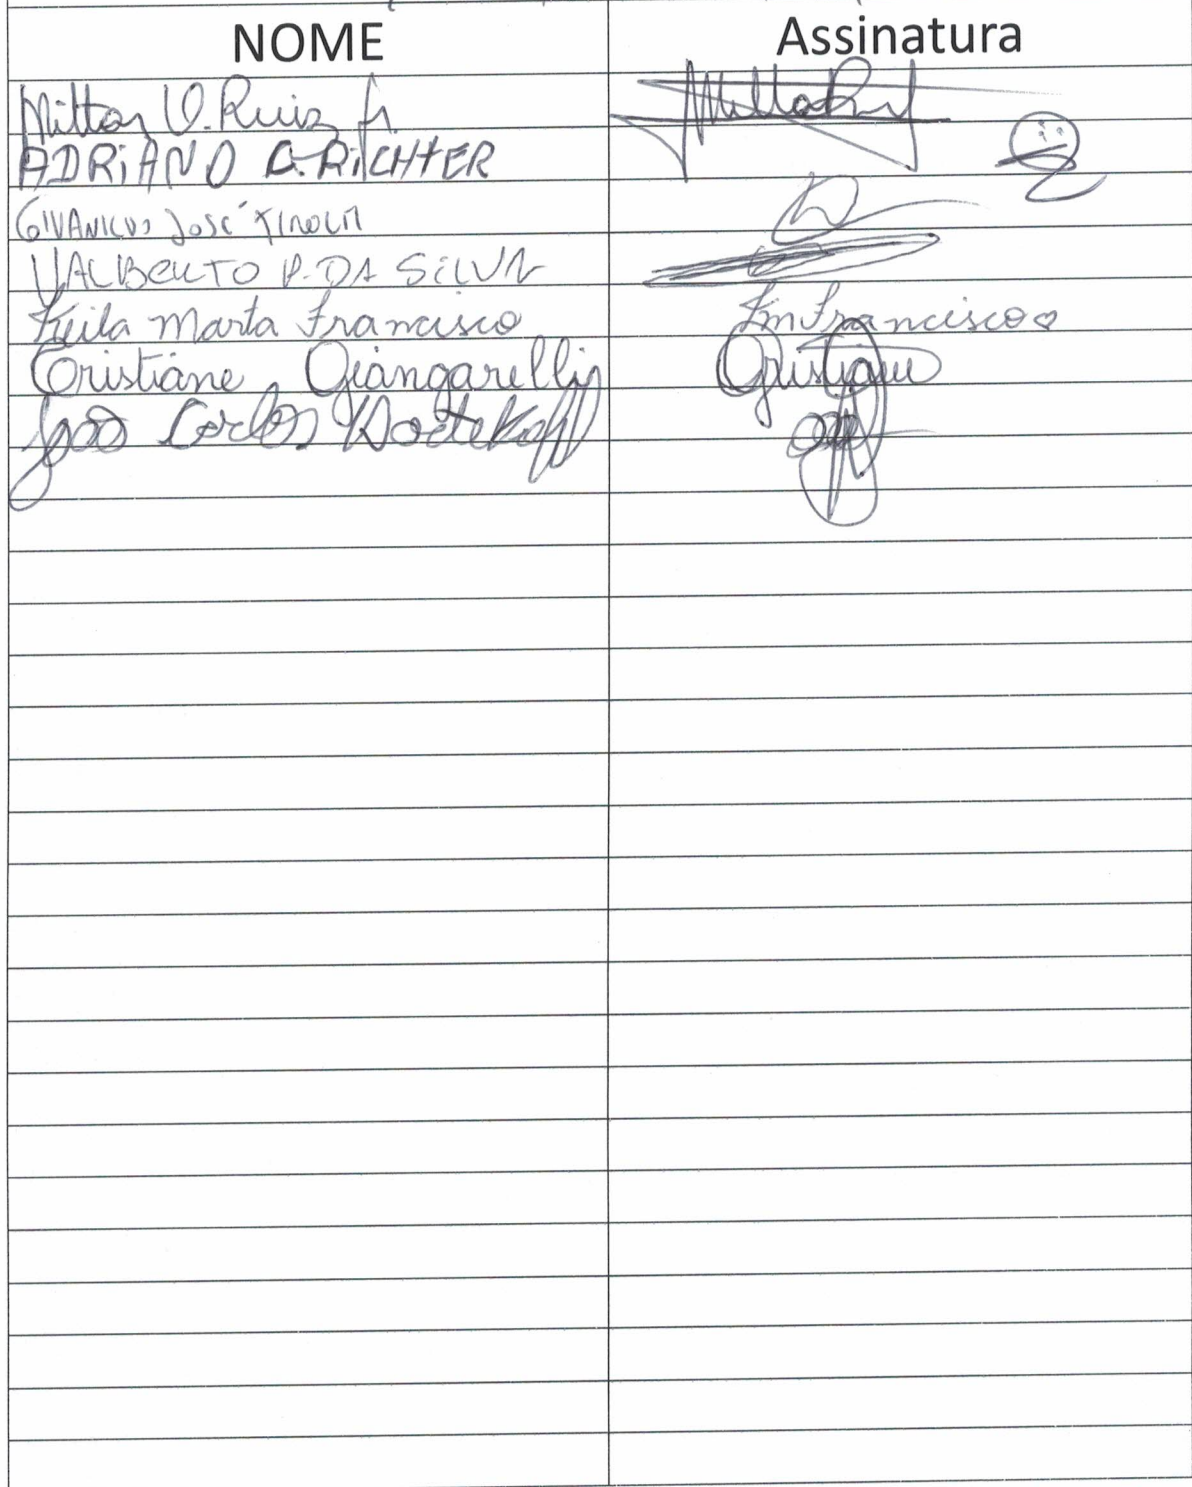 NOME Assinatura
Milton V. Ruiz Jr.
ADRIANO C. RICHTER
José
VALBERTO P. DA SILVA
Keila Marta Francisco KmFrancisco
Cristiane Giangarelli Cristiane
João Carlos